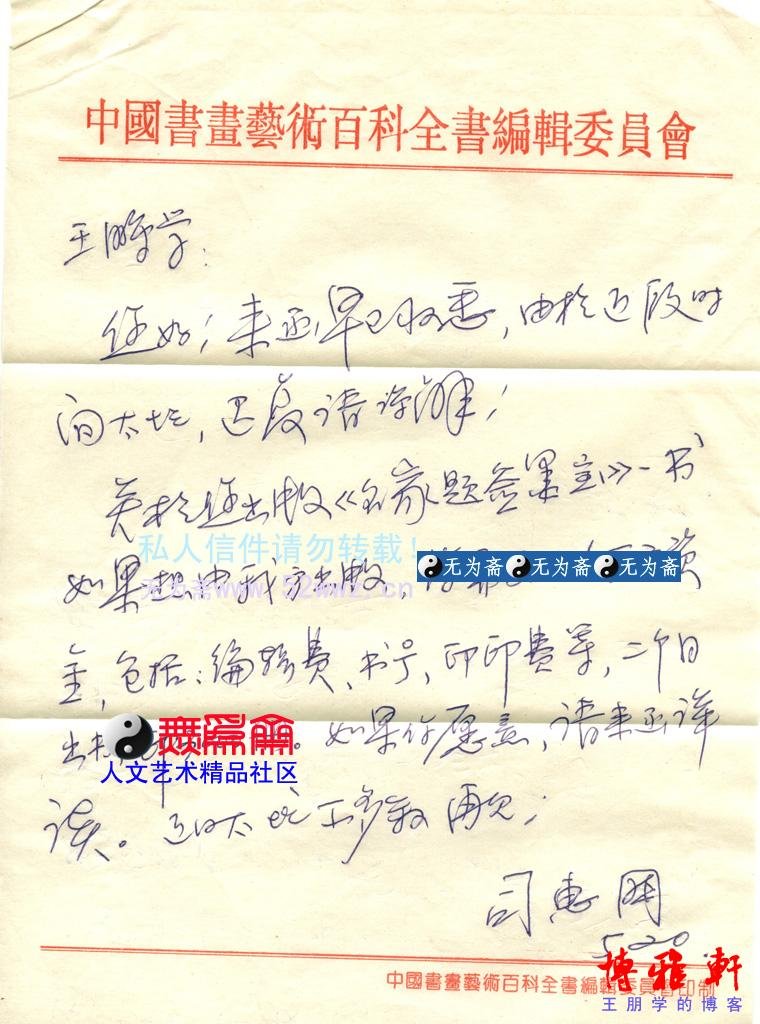 中國書畫藝術百科全書編輯委員會
王鵬学：
您好！来函早已收悉，由於近段时
间太忙，迟复请谅解！
关於您出版《名家题签墨宝》一书
私人信件请勿转载！
如果想由我方出版
无为斋www.52wwz.cn
无为斋 无为斋 无为斋
金，包括：编辑费、书号、印印费等，二个月
出书。如果你愿意，请来函详
無為齋
人文艺术精品社区
谈。近日太忙不多叙，再见！
司惠国
5.20
中國書畫藝術百科全書編輯委員會印制
博雅軒
王朋学的博客